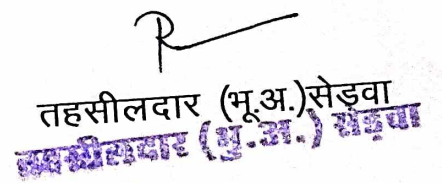 तहसीलदार (भू.अ.)सेड़वा
तहसीलदार (भु.अ.) सेड़वा